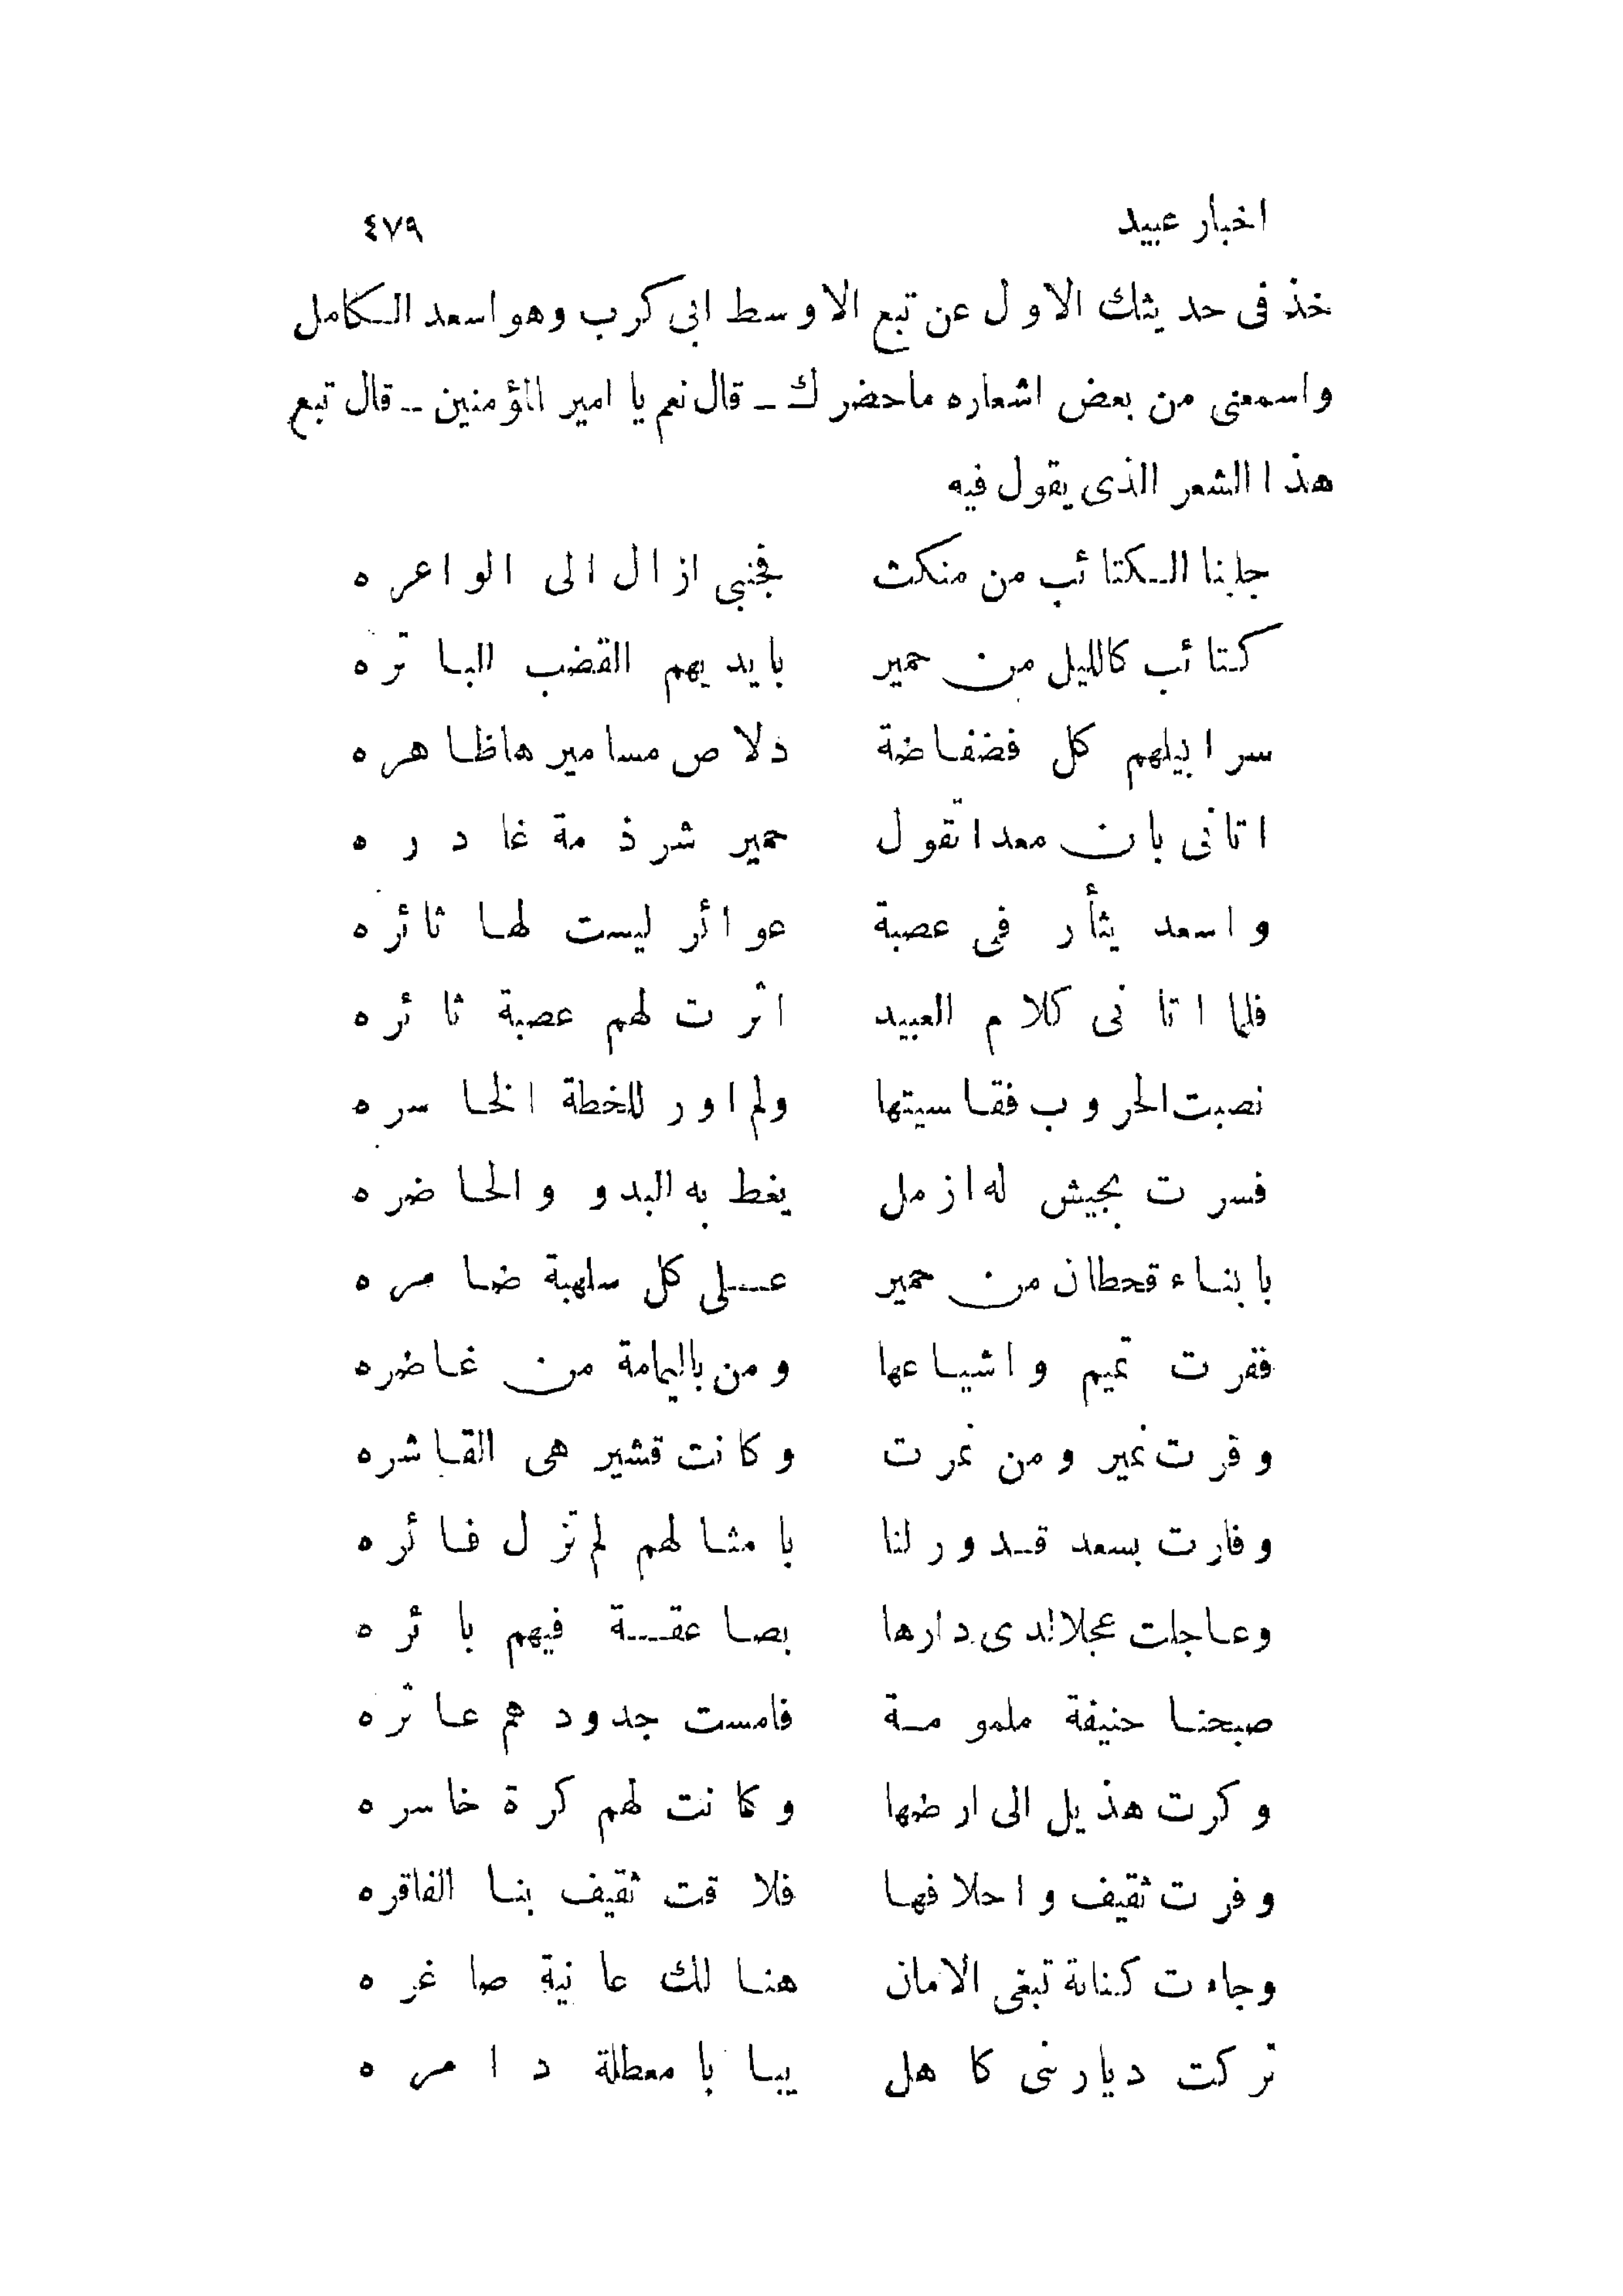 اخبار عبيد ٤٧٩
خذ فى حديثك الاول عن تبع الاوسط ابى كرب وهو اسعد الكامل
واسمعنى من بعض اشعاره ماحضرك ــ قال نعم يا امير المؤمنين ــ قال تبع
هذا الشعر الذى يقول فيه
جلبنا الكتائب من منكث فجنبى ازال الى الواعره
كتائب كالليل من حمير بايديهم القضب الباتره
سرابيلهم كل فضفاضة دلاص مساميرها ظاهره
اتانى بان معدا تقول حمير شرذمة غادره
واسعد يثأر فى عصبة عوائر ليست لها ثائره
فلما اتانى كلام العبيد اثرت لهم عصبة ثائره
نصبت الحروب فقاسيتها ولم اور للخطة الخاسره
فسرت بجيش له ازمل يغط به البدو والحاضره
بابناء قحطان من حمير على كل سلهبة ضامره
ففرت تميم واشياعها ومن باليمامة من غاضره
وفرت نمير ومن نمرت وكانت قشير هى القاشره
وفارت بسعد قدور لنا بامثالهم لم تزل فائره
وعاجلت عجلا لدى دارها بصاعقة فيهم بائره
صبحنا حنيفة ملمومة فامست جدودهم عاثره
وكرت هذيل الى ارضها وكانت لهم كرة خاسره
وفرت ثقيف واحلافها فلاقت ثقيف بنا الفاقره
وجاءت كنانة تبغى الامان هنالك عانية صاغره
تركت ديار بنى كاهل يبابا معطلة دامره